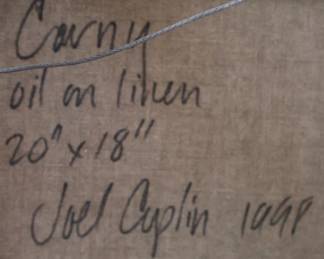 Carny
oil on linen
20" x 18"
Joel Coplin 1998